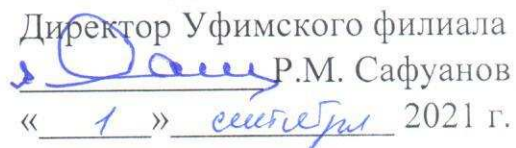 Директор Уфимского филиала
Р.М. Сафуанов
« 1 » сентября 2021 г.